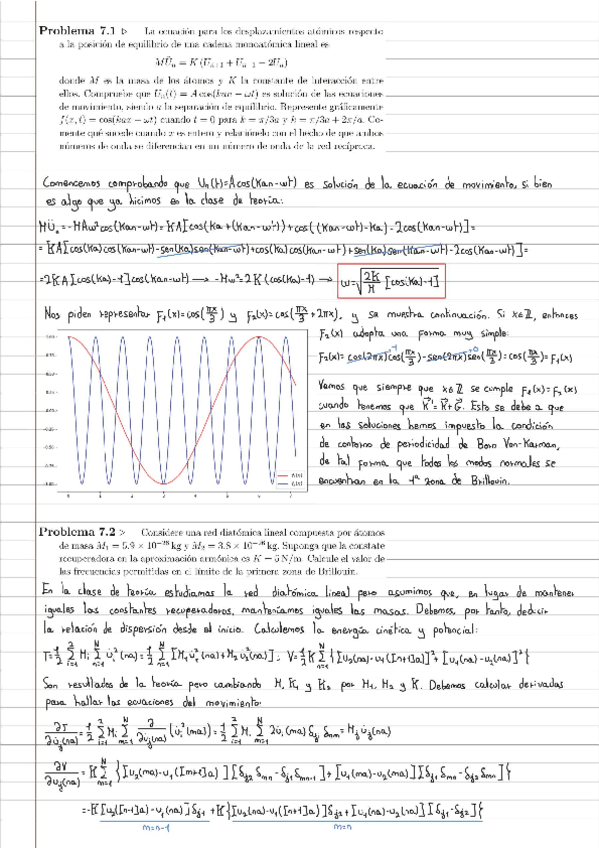 Problema 7.1 ▷ La ecuación para los desplazamientos atómicos respecto
a la posición de equilibrio de una cadena monoatómica lineal es
MÜₙ = K (Uₙ₊₁ + Uₙ₋₁ − 2Uₙ)
donde M es la masa de los átomos y K la constante de interacción entre
ellos. Compruebe que Uₙ(t) = A cos(kan − ωt) es solución de las ecuaciones
de movimiento, siendo a la separación de equilibrio. Represente gráficamente
f(x, t) = cos(kax − ωt) cuando t = 0 para k = π/3a y k = π/3a + 2π/a. Co-
mente qué sucede cuando x es entero y relaciónelo con el hecho de que ambos
números de onda se diferencian en un número de onda de la red recíproca.
Comencemos comprobando que Uₙ(t)=A cos(kan-wt) es solución de la ecuación de movimiento, si bien
es algo que ya hicimos en la clase de teoría:
MÜₙ=-MAw²cos(kan-wt)=KA[cos(ka+(kan-wt))+cos((kan-wt)-ka)-2cos(kan-wt)]=
=KA[cos(ka)cos(kan-wt)-sen(ka)sen(kan-wt)+cos(ka)cos(kan-wt)+sen(ka)sen(kan-wt)-2cos(kan-wt)]=
=2KA[cos(ka)-1]cos(kan-wt) → -Mw²=2K(cos(ka)-1) → w=√(2K/M [cos(ka)-1])
Nos piden representar F₁(x)=cos(πx/3) y F₂(x)=cos(πx/3+2πx), y se muestra continuación. Si x∈ℤ, entonces
F₂(x) adopta una forma muy simple:
F₂(x)=cos(2πx)cos(πx/3)-sen(2πx)sen(πx/3)=cos(πx/3)=F₁(x)
Vemos que siempre que x∈ℤ se cumple F₁(x)=F₂(x)
cuando tenemos que K'=K+G. Esto se debe a que
en las soluciones hemos impuesto la condición
de contorno de periodicidad de Born Von-Karman,
de tal forma que todos los modos normales se
encuentran en la 1ª zona de Brillouin.
Problema 7.2 ▷ Considere una red diatómica lineal compuesta por átomos
de masa M₁ = 5.9 × 10⁻²⁶ kg y M₂ = 3.8 × 10⁻²⁶ kg. Suponga que la constate
recuperadora en la aproximación armónica es K = 5 N/m. Calcule el valor de
las frecuencias permitidas en el límite de la primera zona de Brillouin.
En la clase de teoría estudiamos la red diatómica lineal pero asumimos que, en lugar de mantener
iguales las constantes recuperadoras, manteníamos iguales las masas. Debemos, por tanto, deducir
la relación de dispersión desde el inicio. Calculemos la energía cinética y potencial:
Son resultados de la teoría pero cambiando M, K₁ y K₂ por M₁, M₂ y K. Debemos calcular derivadas
para hallar las ecuaciones del movimiento:
m=n-1 m=n